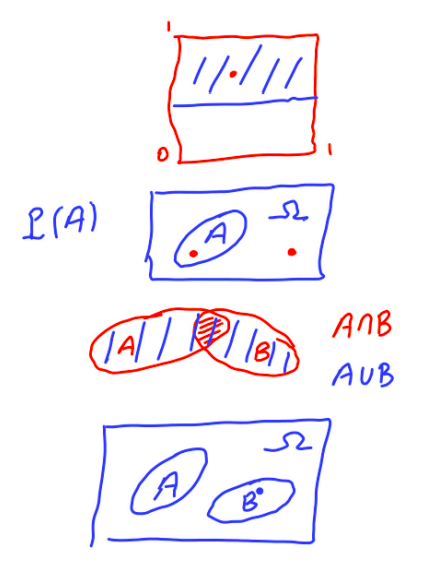 1
0 1
P(A)
A Ω
A B
A∩B
A∪B
Ω
A
B